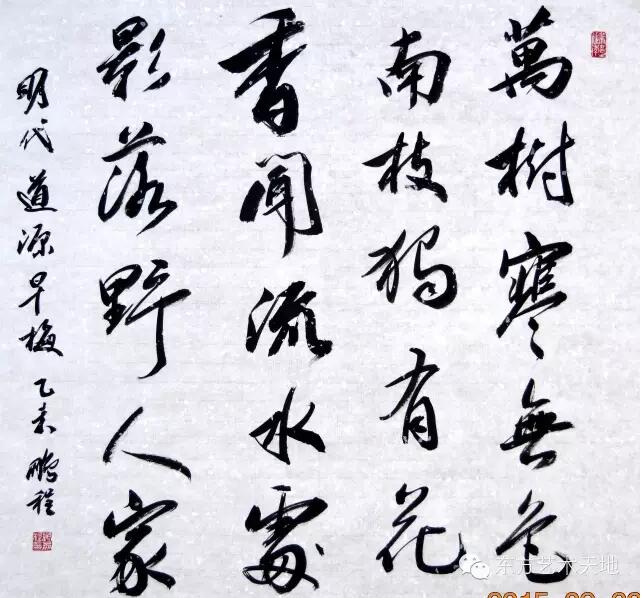 萬樹寒無色
南枝獨有花
香聞流水處
影落野人家
明代道源早梅 乙未 鵬程
东方艺术天地